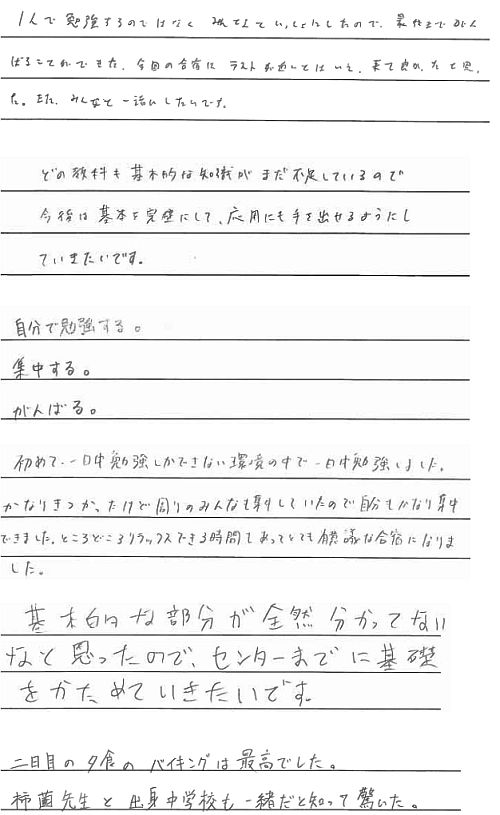 1人で勉強するのではなく みんなといっしょにしたので、最後までがん
ばることができた。今回の合宿に ラスト 参加とはいえ、来て良かったと思っ
た。また、みんなと一緒にしたいです。
どの教科も基本的な知識がまだ不足しているので
今後は基本を完璧にして、応用にも手を出せるようにし
ていきたいです。
自分で勉強する。
集中する。
がんばる。
初めて、一日中勉強しかできない環境の中で一日中勉強しました。
かなりきつかったけど周りのみんなも集中していたので自分もかなり集中
できました。ところどころリラックスできる時間もあってとても有意義な合宿になりま
した。
基本的な部分が全然分かってない
なと思ったので、センターまでに基礎
をかためていきたいです。
二日目の夕食のバイキングは最高でした。
柿薗先生と出身中学校も一緒だと知って驚いた。